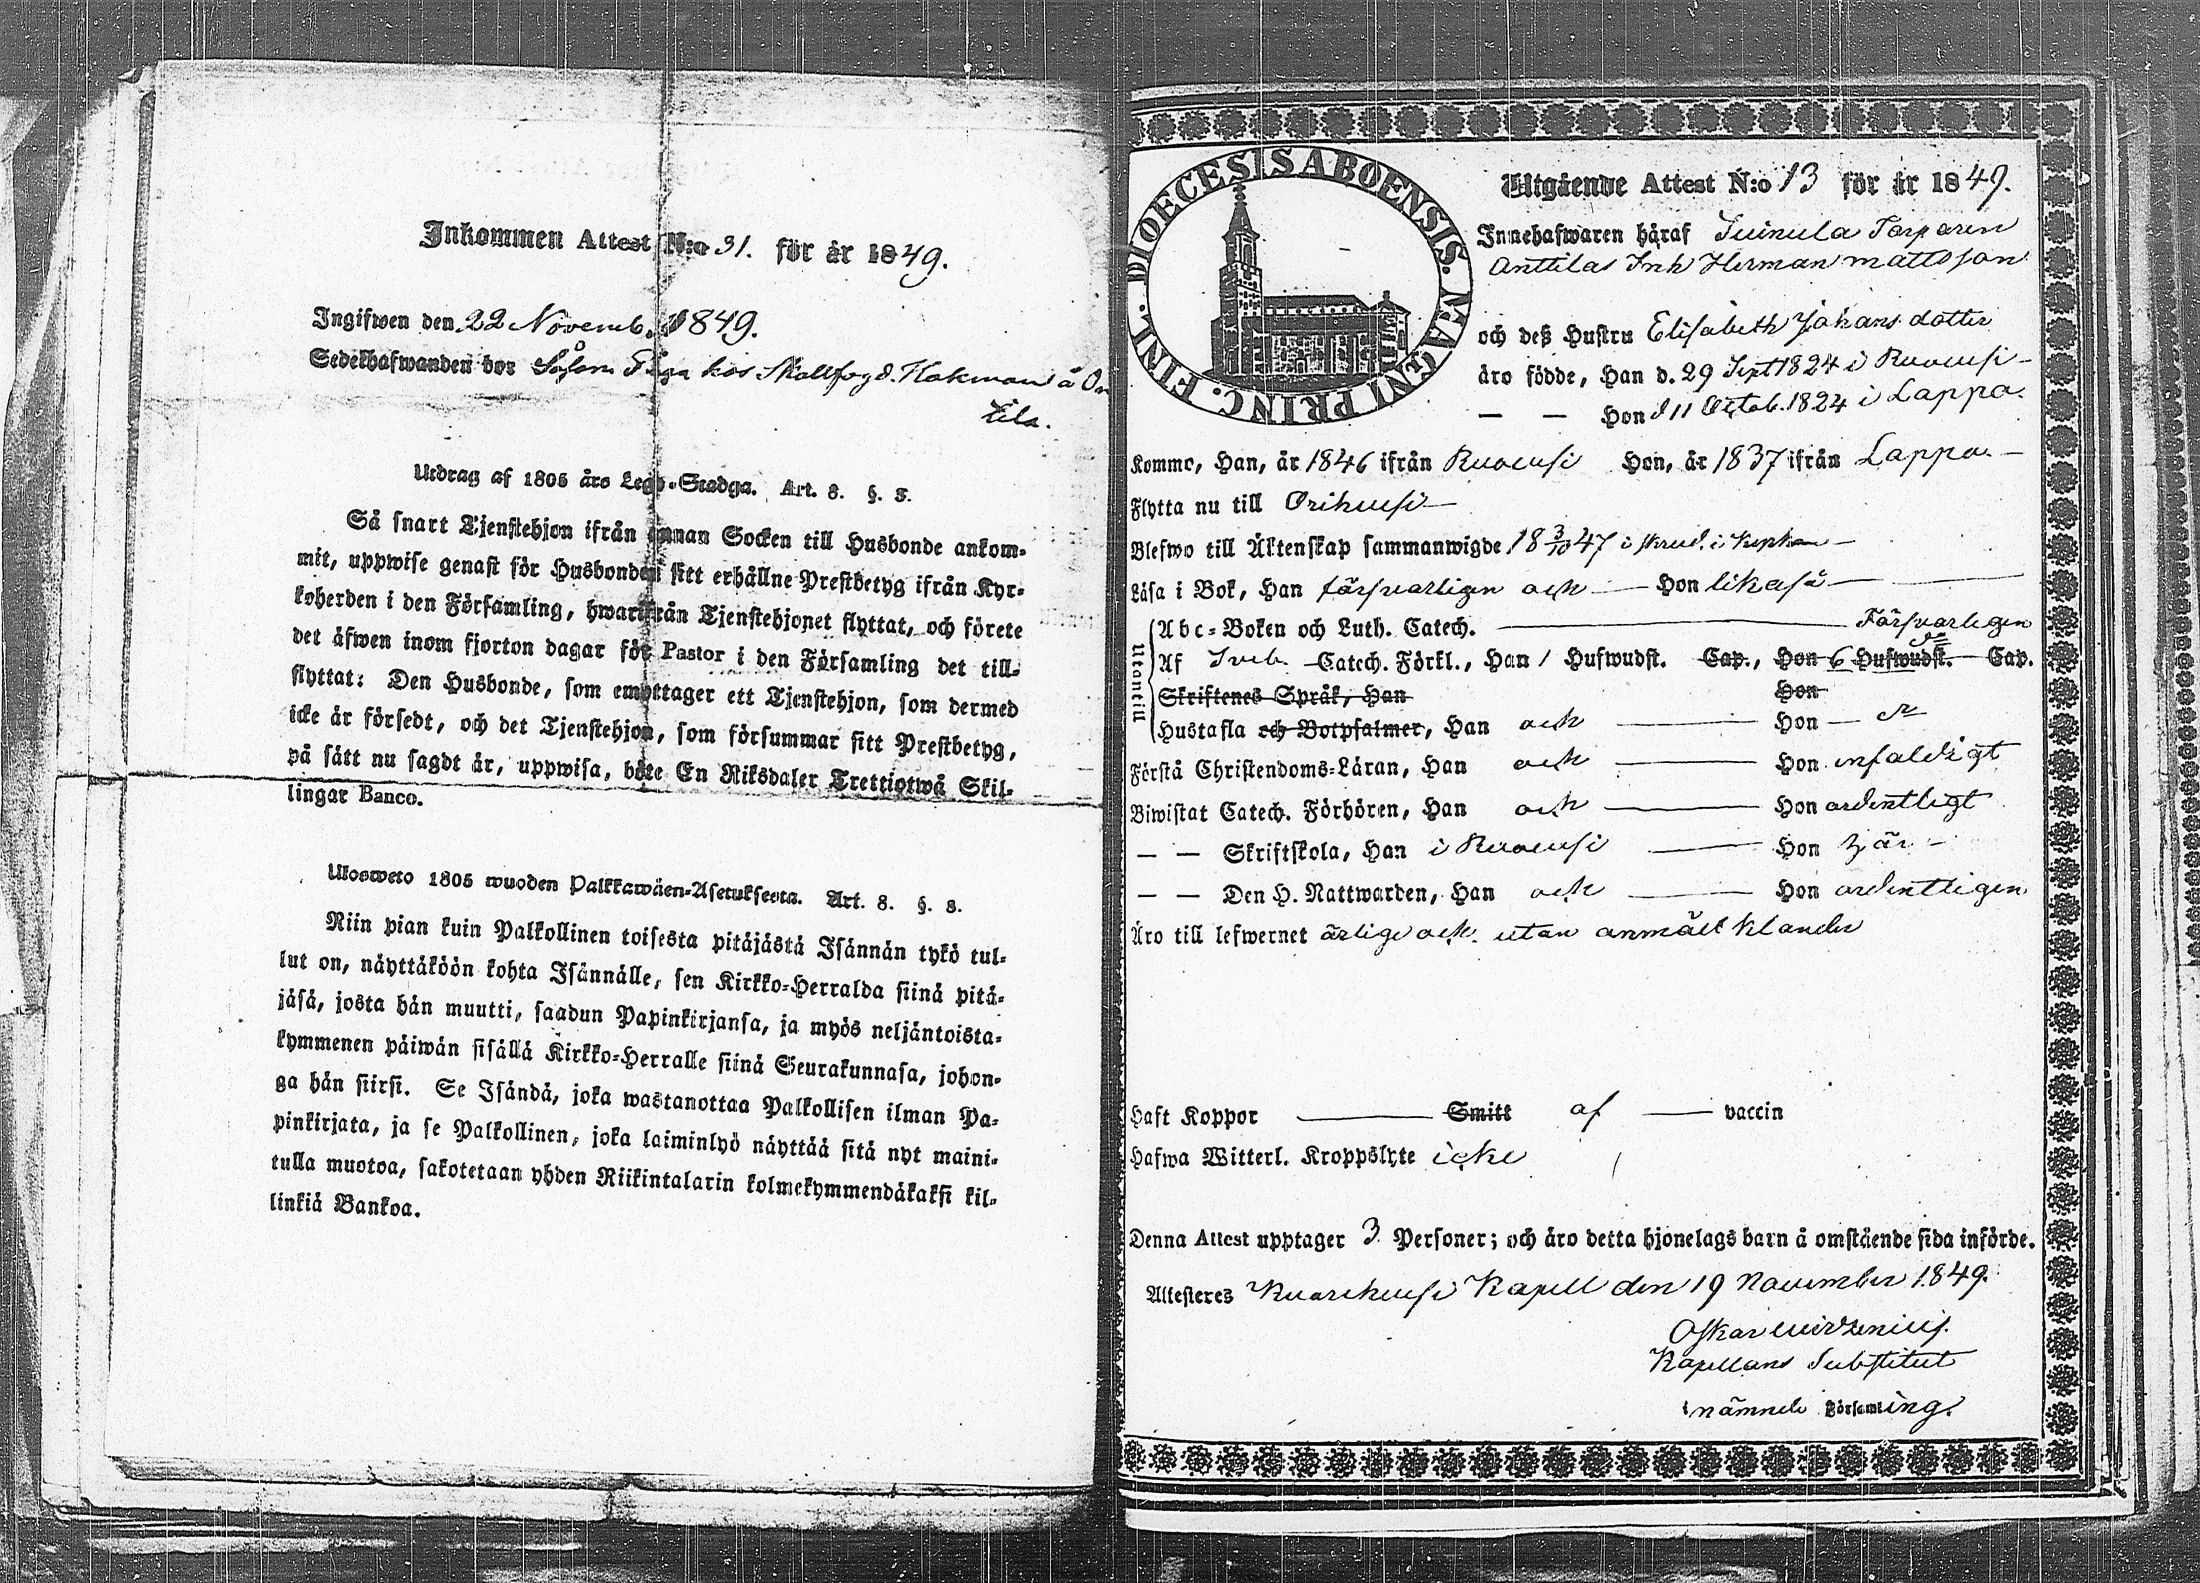 Inkommen Attest N:o 31. för år 1849.
Ingifwen den 22 Novemb. 1849.
Sedelhafwanden bor Såsom Piga hos Skallfogd. Hakman å Or
tila.
Utdrag af 1805 års Lego-Stadga. Art. 8. §. 3.
Så snart Tjenstehjon ifrån annan Socken till Husbonde ankom-
mit, uppwise genast för Husbonden sitt erhållne Prestbetyg ifrån Kyr-
koherden i den Församling, hwarifrån Tjenstehjonet flyttat, och förete
det äfwen inom fjorton dagar för Pastor i den Församling det till-
flyttat: Den Husbonde, som emottager ett Tjenstehjon, som dermed
icke är försedt, och det Tjenstehjon, som försummar sitt Prestbetyg,
på sätt nu sagdt är, uppwisa, böte En Riksdaler Trettiotwå Skil-
lingar Banco.
Ulosweto 1805 wuoden Palkkawäen-Asetuksesta. Art. 8. §. 3.
Niin pian kuin Palkollinen toisesta pitäjästä Isännän tykö tul-
lut on, näyttäköön kohta Isännälle, sen Kirkko-Herralda siinä pitä-
jäsä, josta hän muutti, saadun Papinkirjansa, ja myös neljäntoista-
kymmenen päiwän sisällä Kirkko-Herralle siinä Seurakunnasa, johon-
ga hän siirsi. Se Isändä, joka wastanottaa Palkollisen ilman Pa-
pinkirjata, ja se Palkollinen, joka laiminlyö näyttää sitä nyt maini-
tulla muotoa, sakotetaan yhden Riikintalarin kolmekymmendäkaksi kil-
linkiä Bankoa.
DIOECESIS ABOENSIS. MAGNI PRINC. FINL.
Utgående Attest N:o 13 för år 1849.
Innehafwaren häraf Torparen
Anttilas Inh Herman mattsson
och deß Hustru Elisabeth Johansdotter
äro födde, Han d. 29 Sept 1824 i
— — Hon d 11 Octob. 1824 i Lappo.
Kommo, Han, år 1846 ifrån Hon, år 1837 ifrån Lappo —
Flytta nu till Orihvesi —
Blefwo till Äktenskap sammanwigde 18 3/10 47 i
Läsa i Bok, Han försvarligen och — Hon likaså —
Utantill
Abc-Boken och Luth. Catech. — Försvarligen
Af Sveb. Catech. Förkl., Han 1 Hufwudst. Cap., Hon 6 Hufwudst. Cap.
Skriftenes Språk, Han Hon
Hustafla och Botpsalmer, Han och — Hon —
Förstå Christendoms-Läran, Han och — Hon enfaldigt
Biwistat Catech. Förhören, Han och — Hon ordentligt
— — Skriftskola, Han i — Hon här —
— — Den H. Nattwarden, Han och — Hon ordentligen
Äro till lefwernet ärlige och utan anmält klander
Haft Koppor — Smitt af — vaccin
Hafwa Witterl. Kroppslyte icke
Denna Attest upptager 3 Personer; och äro detta hjonelags barn å omstående sida införde.
Attesteres Kuorehvesi Kapell den 19 November 1849.
Oskar
Kapellans Substitut
i nämnde Församling.